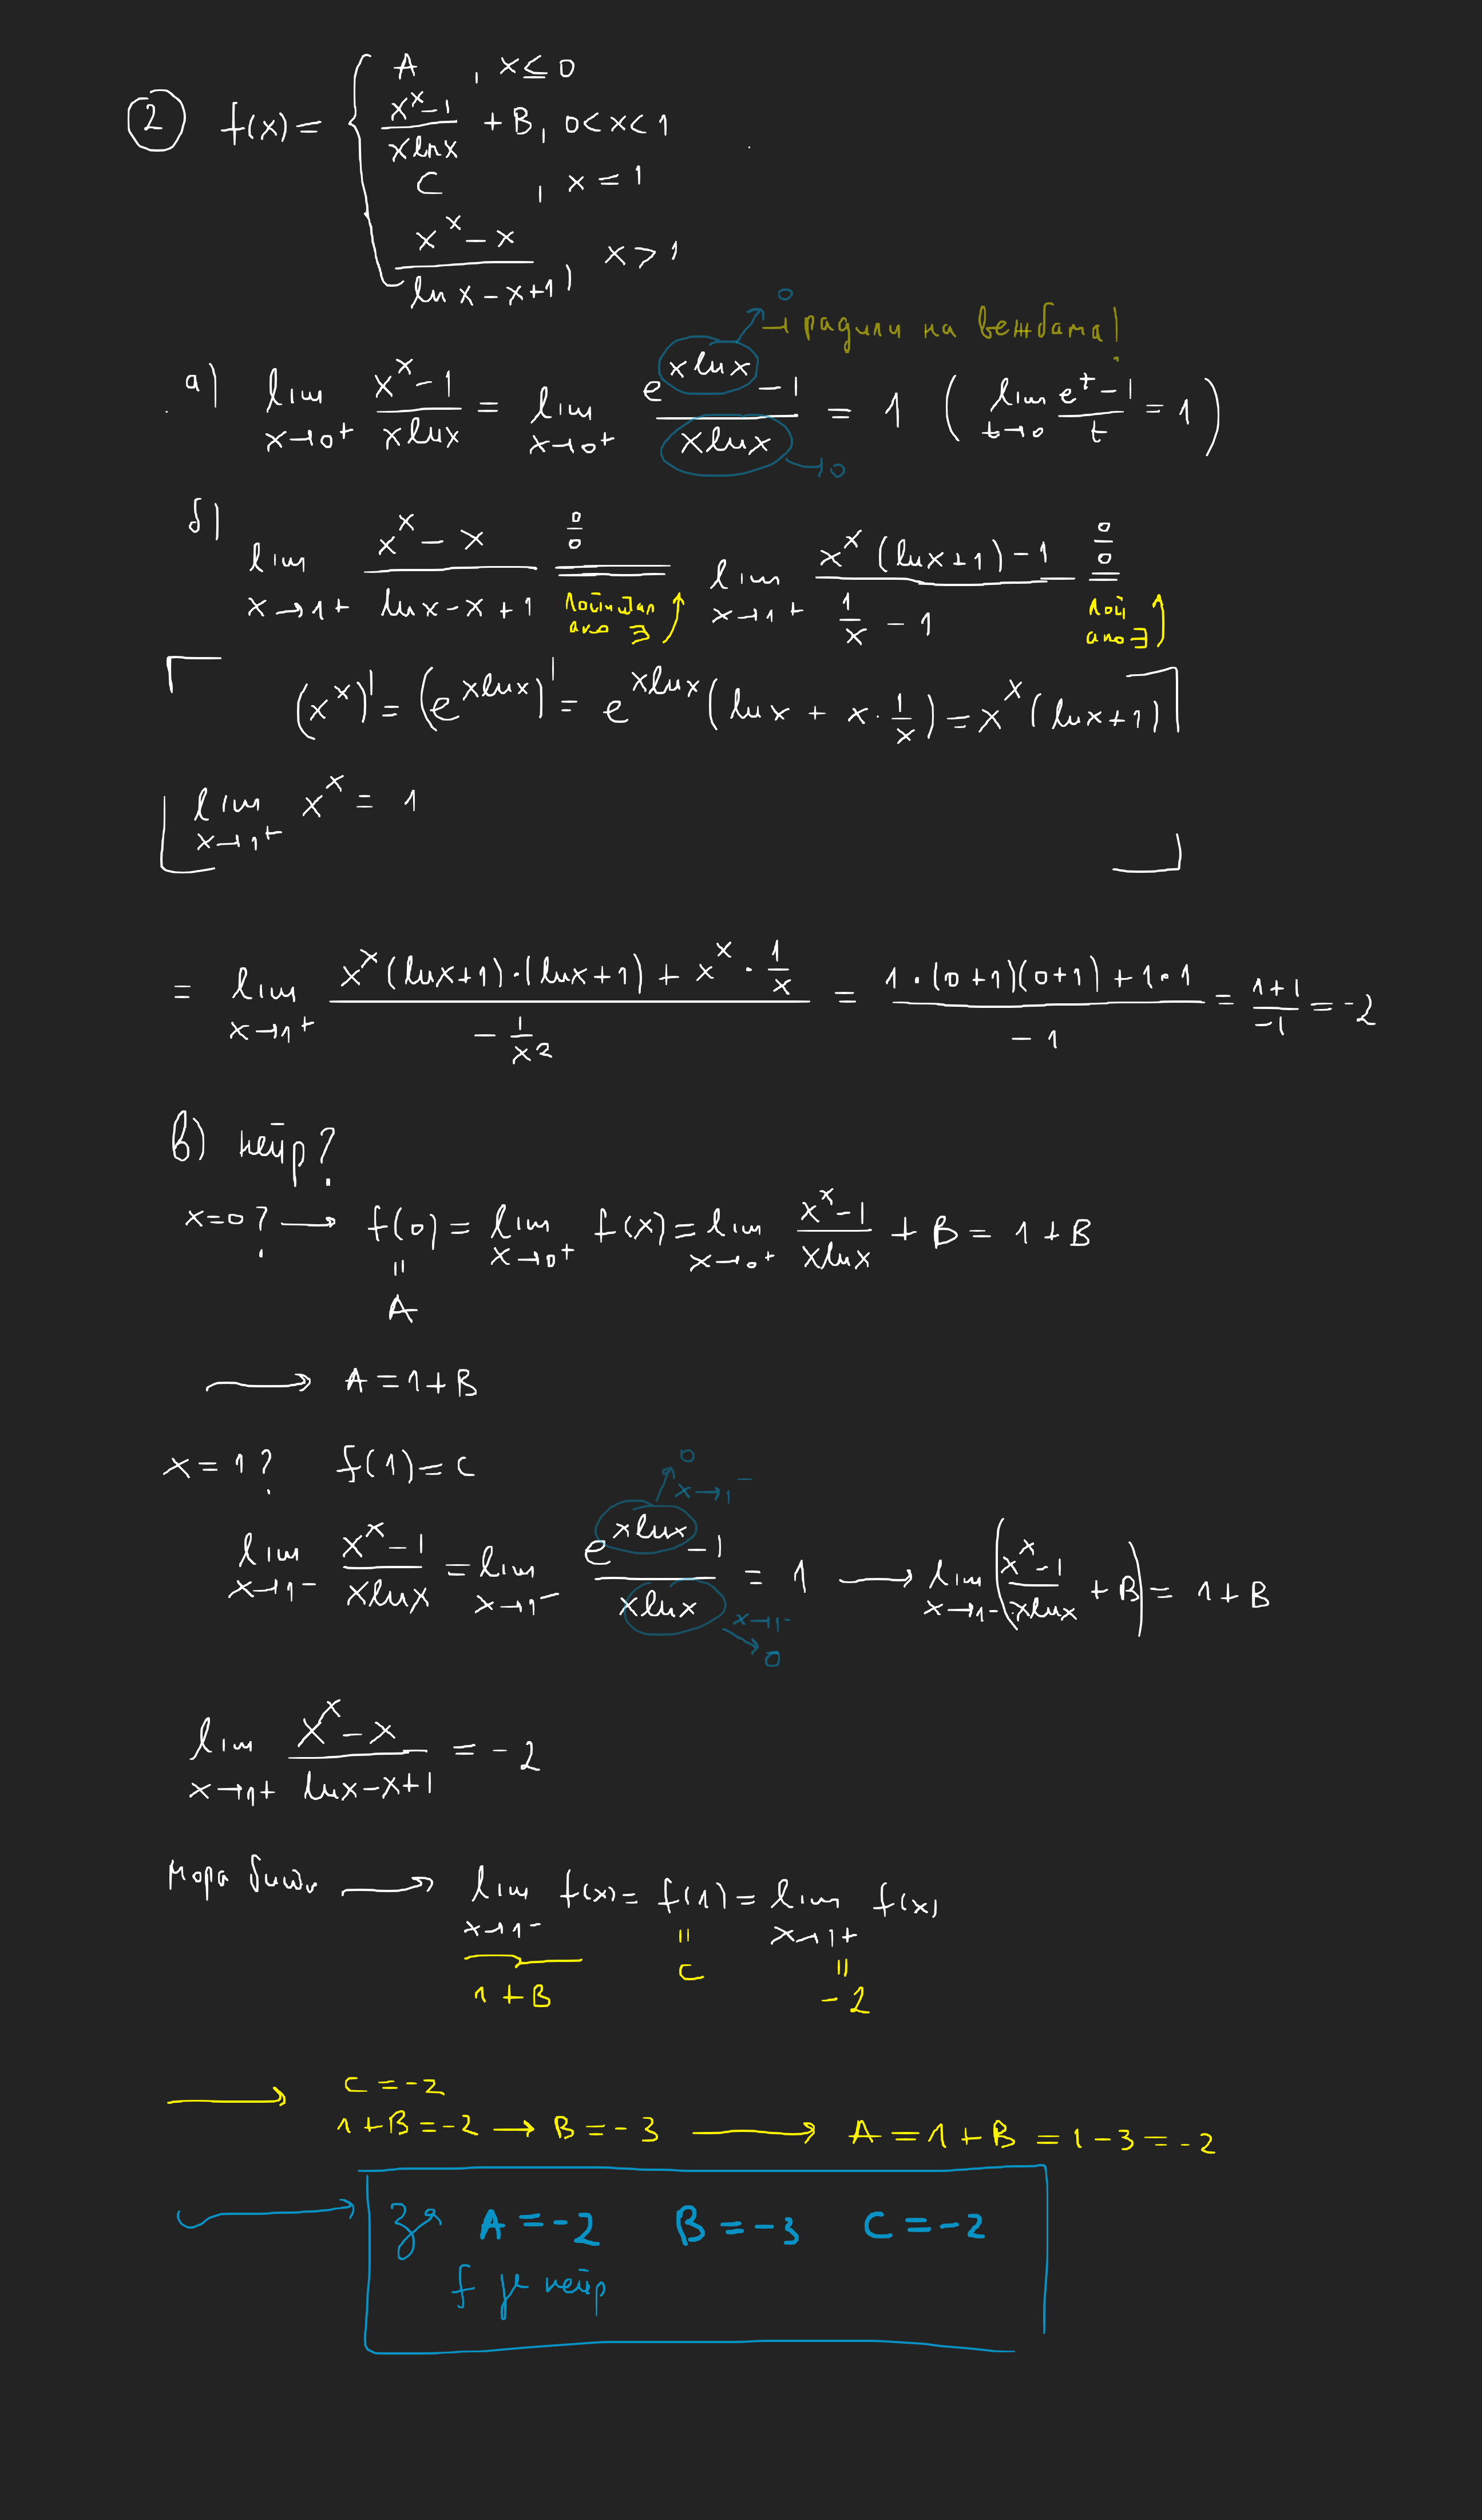 ② f(x) = { A , x ≤ 0
(x^x - 1)/(x ln x) + B, 0 < x < 1
C , x = 1
(x^x - x)/(ln x - x + 1), x > 1
→ радили на вежбама!
а) lim_{x→0+} (x^x - 1)/(x ln x) = lim_{x→0+} (e^{x ln x} - 1)/(x ln x) = 1 ( lim_{t→0} (e^t - 1)/t = 1 )
x ln x → 0
x ln x → 0
б) lim_{x→1+} (x^x - x)/(ln x - x + 1) = 0/0 lim_{x→1+} (x^x (ln x + 1) - 1)/(1/x - 1) = 0/0
Лопитал ако ∃ ↑ Лоп ако ∃ ↑
(x^x)' = (e^{x ln x})' = e^{x ln x} (ln x + x · 1/x) = x^x (ln x + 1)
lim_{x→1+} x^x = 1
= lim_{x→1+} (x^x (ln x + 1) · (ln x + 1) + x^x · 1/x)/(- 1/x^2) = (1 · (0+1)(0+1) + 1·1)/(-1) = (1+1)/(-1) = -2
в) непр?
x=0? → f(0) = lim_{x→0+} f(x) = lim_{x→0+} (x^x - 1)/(x ln x) + B = 1 + B
=
A
→ A = 1 + B
x = 1? f(1) = C
0
x→1-
lim_{x→1-} (x^x - 1)/(x ln x) = lim_{x→1-} (e^{x ln x} - 1)/(x ln x) = 1 → lim_{x→1-} ((x^x - 1)/(x ln x) + B) = 1 + B
x→1-
0
lim_{x→1+} (x^x - x)/(ln x - x + 1) = -2
мора бити → lim_{x→1-} f(x) = f(1) = lim_{x→1+} f(x)
1 + B = C = -2
→ C = -2
1 + B = -2 → B = -3 → A = 1 + B = 1 - 3 = -2
→ за A = -2 B = -3 C = -2
f је непр